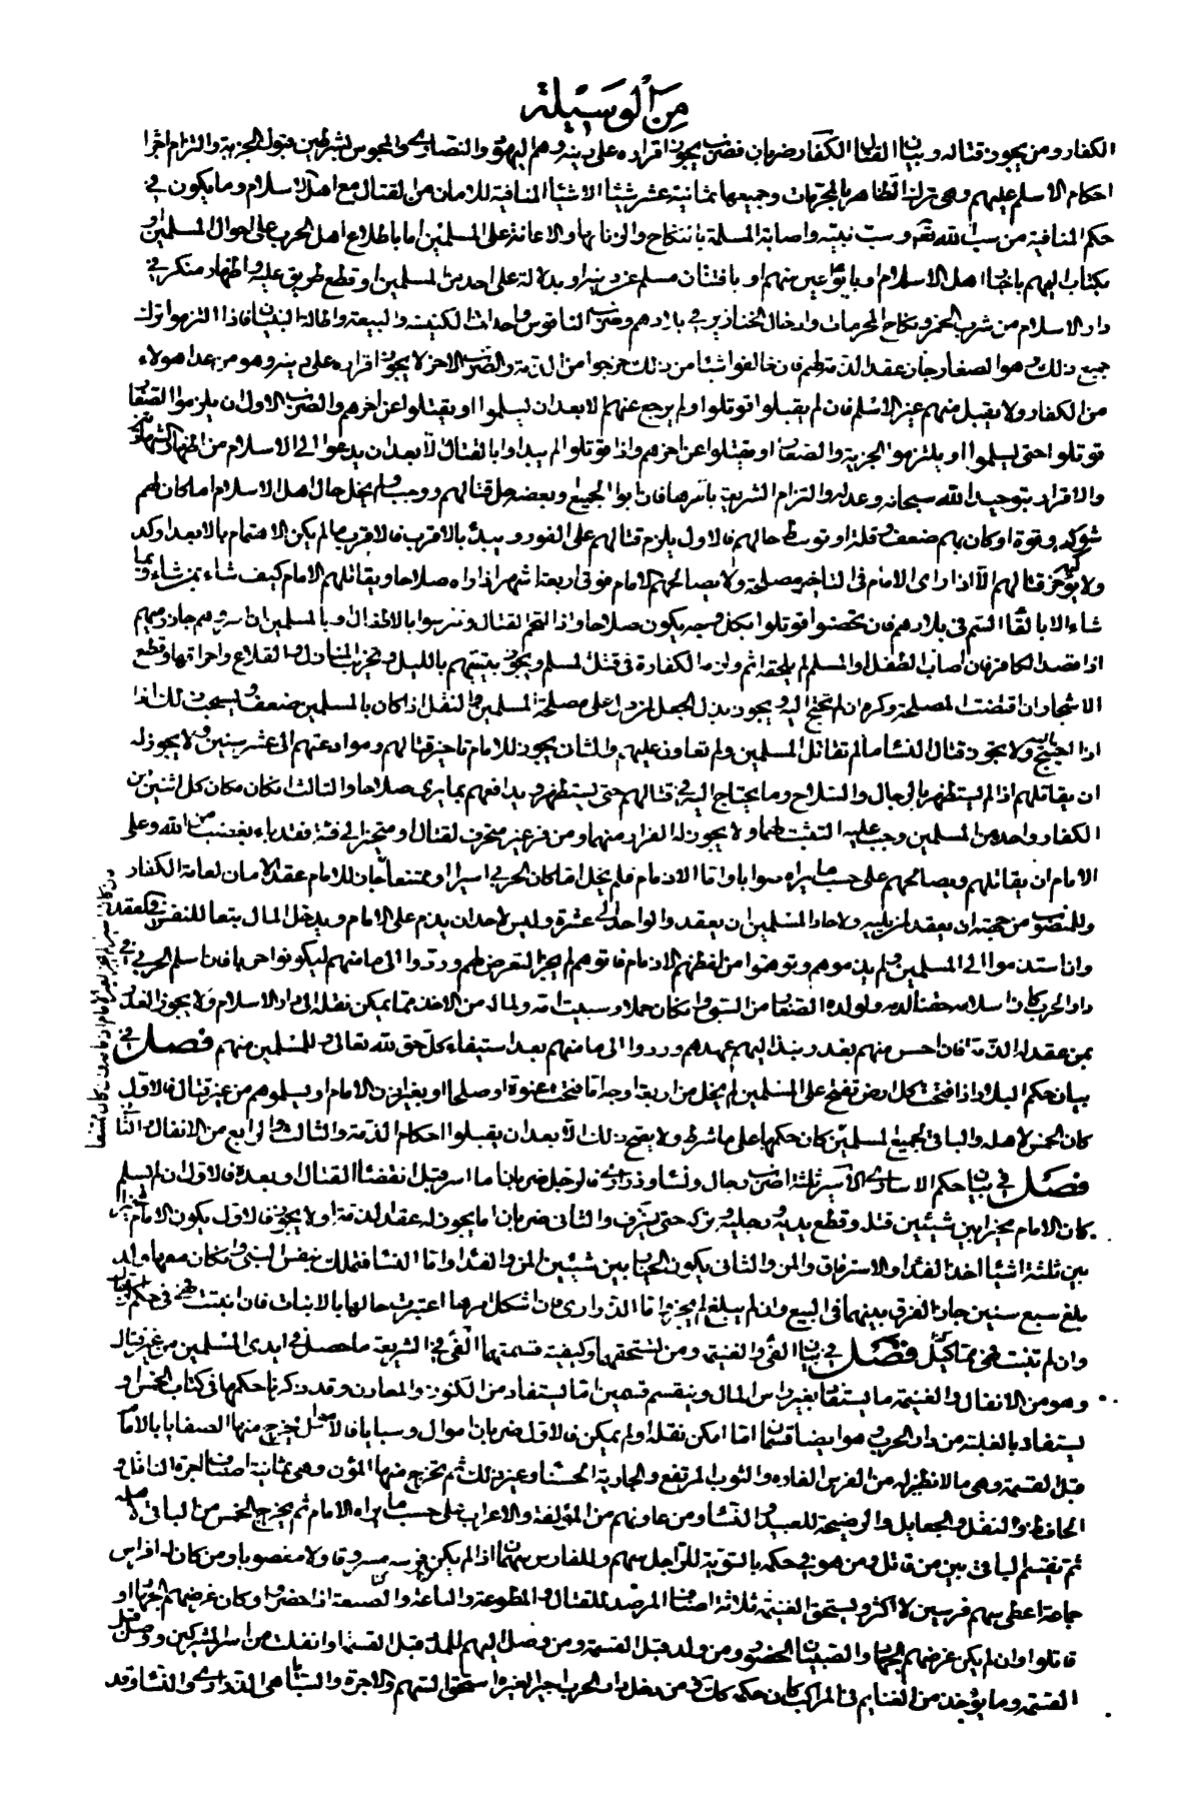 مِنَ الْوَسِيْلة
الكفار ومن يجوز قتاله وبيان القتال الكفار ضربان فضرب يجوز اقراره على دينه وهم اليهود والنصارى والمجوس بشرطين قبول الجزية والتزام اجرا
احكام الاسلم عليهم وهى ترك التظاهر بالمحرمات وجميعها ثمانية عشر شيئا الاشيا المنافية للامان من القتال مع اهل الاسلام وما يكون في
حكم المنافية من سب الله تعه وسب نبيه واصابة المسلمة بالنكاح والزنا بها والاعانة على المسلمين اما باطلاع اهل الحرب على احوال المسلمين او
بكتاب اليهم باخبار اهل الاسلام او بايواء عين منهم او بافتنان مسلم عن دينه او بدلالة على احد من المسلمين او قطع طريق عليه واظهار منكر في
دار الاسلام من شرب الخمر ونكاح المحرمات وادخال الخنازير في بلادهم وضرب الناقوس واحداث الكنيسة والبيعة واطالة البنيان فاذا التزموا ترك
جميع ذلك وهو الصغار جاز عقد الذمة لهم فان خالفوا شيئا من ذلك خرجوا من الذمة والضرب الاخر لا يجوز اقراره على دينه وهو من عدا هولاء
من الكفار ولا يقبل منهم غير الاسلم فان لم يقبلوا قوتلوا ولم يرجع عنهم الا بعد ان يسلموا او يقتلوا عن اخرهم والضرب الاول ان يلزموا الصغار
قوتلوا حتى يسلموا او يلتزموا الجزية والصغار او يقتلوا عن اخرهم واذا قوتلوا لم يبداوا بالقتال الا بعد ان يدعوا الى الاسلام من اظهار الشهادتين
والاقرار بتوحيد الله سبحانه وعدله والتزام الشريعة باسرها فان ابوا الجميع وبعضه حل قتالهم ووجب ولم يخل حال اهل الاسلام اما كان لهم
شوكه وقوة او كان بهم ضعف وقلة او توسط حالهم فالاول يلزم قتالهم على الفور ويبدء بالاقرب فالاقرب ما لم يكن الاهتمام بالابعد اوكد
ولا يؤخر قتالهم الا اذا راى الامام فى التاخير مصلحة ولا يصالحهم الامام فوق اربعة اشهر اذا راه صلاحا ويقاتلهم الامام كيف شاء بمن شاء وبما
شاء الا بالقاء السم فى بلادهم فان تحصنوا قوتلوا بكل وجه يكون صلاحا واذا التحم القتال وتترسوا بالاطفال وبالمسلمين ان اسروهم جاز رميهم
اذا قصد الكافر فان اصاب الطفل او المسلم لم يلحقه اثم ولزمه الكفارة فى قتل المسلم ويجوز تبييتهم بالليل وتخريب المنازل والقلاع واحراقها وقطع
الاشجار ان اقتضت المصلحة وكره ان لم يحتج اليه ويجوز بذل الجعل لمن دل على مصلحة المسلمين والنفل اذا كان بالمسلمين ضعف ويستحب تلك اذا
اذا احتيج اليه ولا يجوز قتال النساء ما لم تقاتل المسلمين ولم تعاون عليهم والثان يجوز للامام تاخير قتالهم وموادعتهم الى عشر سنين ولا يجوز له
ان يقاتلهم اذا لم يستظهر بالرجال والسلاح وما يحتاج اليه في قتالهم حتى يستظهر ويدافعهم بما يرى صلاحا والثالث ان كان مكان كل اثنين من
الكفار واحد من المسلمين وجب عليه التثبت لهما ولا يجوز له الفرار منهما ومن فر غير متحرف لقتال او متحيز الى فئة فقد باء بغضب من الله وعلى
الامام ان يقاتلهم ويصالحهم على حسب ما يراه صوابا واما الاذمام فلم يخل اما كان الحربي اسيرا او ممتنعا جاز للامام عقد الامان لعامة الكفار
وللمنصوب من جهته ان يعقد لمن يليه ولاحاد المسلمين ان يعقد والواحد الى عشرة وليس لاحد ان يذم على الامام ويدخل المال تبعا للنفس في العقد
وان استذموا الى المسلمين ولم يذموهم وتوهموا من لفظهم الاذمام فاتوهم لم يجز التعرض لهم وردوا الى مامنهم ليكونوا حربا فان اسلم الحربي في
دار الحرب كان اسلامه حقنا لدمه ولولده الصغار من السبي وان كان حملا وسبيت امه ولماله من الاخذ مما يمكن نقله الى دار الاسلام ولا يجوز الغدر
بمن عقد له الذمة فان احس منهم بغدر ينبذ اليهم عهدهم وردوا الى مامنهم بعد استيفاء كل حق لله تعالى وللمسلمين منهم فصل في
بيان حكم البلاد اذا فتحت كل ارض تفتح على المسلمين لم يخل من اربعة اوجه اما فتحت عنوة او صلحا او بغير اذن الامام او يسلموهم من غير قتال فالاول
كان الخمس لاهله والباقي لجميع المسلمين كان حكمها على ما شرط ولا يصح ذلك الا بعد ان يقبلوا احكام الذمة والثالث والرابع من الانفال الثا
فصل في بيان حكم الاسارى الاسير ثلثة اضرب رجال ونساء وذرارى فالرجل ضربان اما اسر قبل انقضاء القتال او بعده فالاول ان لم يسلم
كان الامام مخيرا بين شيئين قتله وقطع يديه ورجليه وتركه حتى ينزف والثان ضربان اما يجوز له عقد الذمة او لا يجوز فالاول يكون الامام مخيرا
بين ثلثة اشياء اخذ الفداء والاسترقاق والمن والثانى يكون الخيار بين شيئين المن والفداء واما النساء فتملك بنفس السبى وان كان معها ولد
بلغ سبع سنين جاز الفرق بينهما فى البيع وان لم يبلغ لم يجز واما الذرارى فان اشكل امرها اعتبرت حالها بالانبات فان انبتت فهى فى حكم
وان لم تنبت فهى مماليك فصل في بيان الفئ والغنيمة ومن يستحقهما وكيفية قسمتهما الفئ في الشريعة ما حصل فى ايدى المسلمين من غير قتال
وهو من الانفال والغنيمة ما يستفاد بغير راس المال وينقسم قسمين اما يستفاد من الكنوز والمعادن وقد ذكرنا حكمها فى كتاب الخمس او
يستفاد بالغلبة من دار الحرب وهو ايضا قسمان اما امكن نقله او لم يمكن فالاول ضربان اموال وسبايا فالاموال يخرج منها الصفايا بالامام
قبل القسمة وهى ما لا نظير له من الفرس الفاره والثوب المرتفع والجارية الحسناء وغير ذلك ثم تخرج منها المؤن وهى ثمانية اصناف اجرة الناقل و
الحافظ والنفل والجعايل والرضيخة للعبيد والنساء ومن عاونهم من المؤلفة والاعراب على حسب ما يراه الامام ثم يخرج الخمس من الباقى لاهله
ثم يقسم الباقى بين من قاتل ومن هو في حكمه بالسوية للراجل سهم وللفارس سهمان اذا لم يكن فرسه مسروقا ولا مغصوبا ومن كان له افراس
جماعة اعطى سهم فرسين لا اكثر ويستحق الغنيمة ثلاثة اصناف المرصد للقتال والمطوعة والباعة والصنعة اذا حضروا وكان غرضهم الجهاد او
قاتلوا وان لم يكن غرضهم الجهاد والصبيان الحضور ومن ولد قبل القسمة ومن وصل اليهم للمدد قبل القسمة او انفلت من اسر المشركين ووصل قبل
القسمة وما يؤخذ من الغنايم فى المراكب كان حكمه كذلك ومن دخل دار الحرب اجيرا لغيره استحق السهم والاجرة والسبايا هى الذرارى والنساء وقد